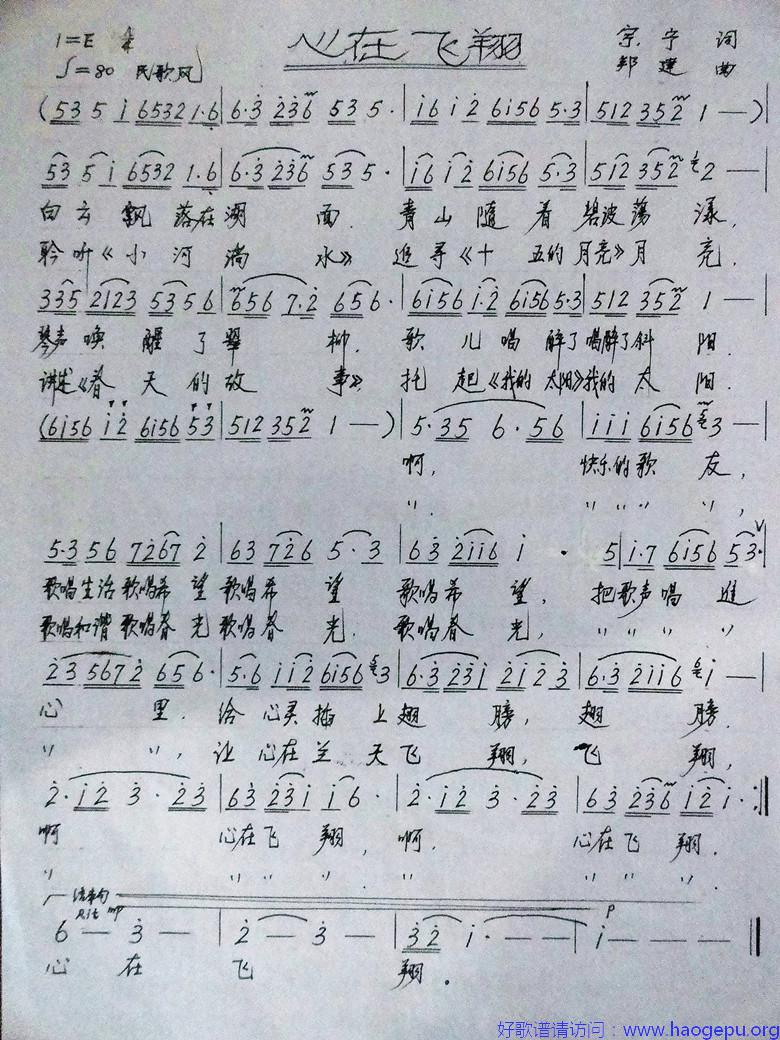 心在飞翔
1=E 4/4
♩=80 民歌风
宗宁 词
邦建 曲
(53 5 i 6532 1·6 | 6·3 236 53 5· | i6 i2 6i56 5·3 | 512 352 1 — )
53 5 i 6532 1·6 | 6·3 236 53 5· | i6 i2 6i56 5·3 | 512 352 2 — |
白云飘落在湖面. 青山随着碧波荡漾,
聆听《小河淌水》 追寻《十五的月亮》月亮.
335 2123 53 56 | 656 7·2 656· | 6i56 i·2 6i56 5·3 | 512 352 1 — |
琴声唤醒了翠柳. 歌儿唱醉了唱醉了斜阳.
讲述《春天的故事》 托起《我的太阳》我的太阳.
(6i56 i2 6i56 53 | 512 352 1 — ) | 5·35 6·56 | iii 6i56 3 — |
啊, 快乐的歌友,
〃. 〃〃〃〃,
5·3 56 7267 2 | 63 726 5·3 | 63 2ii6 i · 5 | i·7 6i56 53· |
歌唱生活歌唱希望歌唱希望 歌唱希望, 把歌声唱进
歌唱和谐歌唱春光歌唱春光. 歌唱春光, 〃〃〃〃〃
23 5672 656· | 5·6 ii2 6i56 3 | 6·3 23i 2i23 | 6·3 2ii6 i — |
心里. 给心灵插上翅膀, 翅膀.
〃〃, 让心在兰天飞翔, 飞翔,
2·i2 3·23 | 63 23i i6· | 2·i2 3·23 | 63 236 i2i· :‖
啊 心在飞翔, 啊. 心在飞翔.
〃 〃〃〃〃. 〃 〃〃〃〃.
结束句
Rit mp
p
6 — 3 — | 2 — 3 — | 32 i· — — | i — — — ‖
心在飞翔.
好歌谱请访问：www.haogepu.org